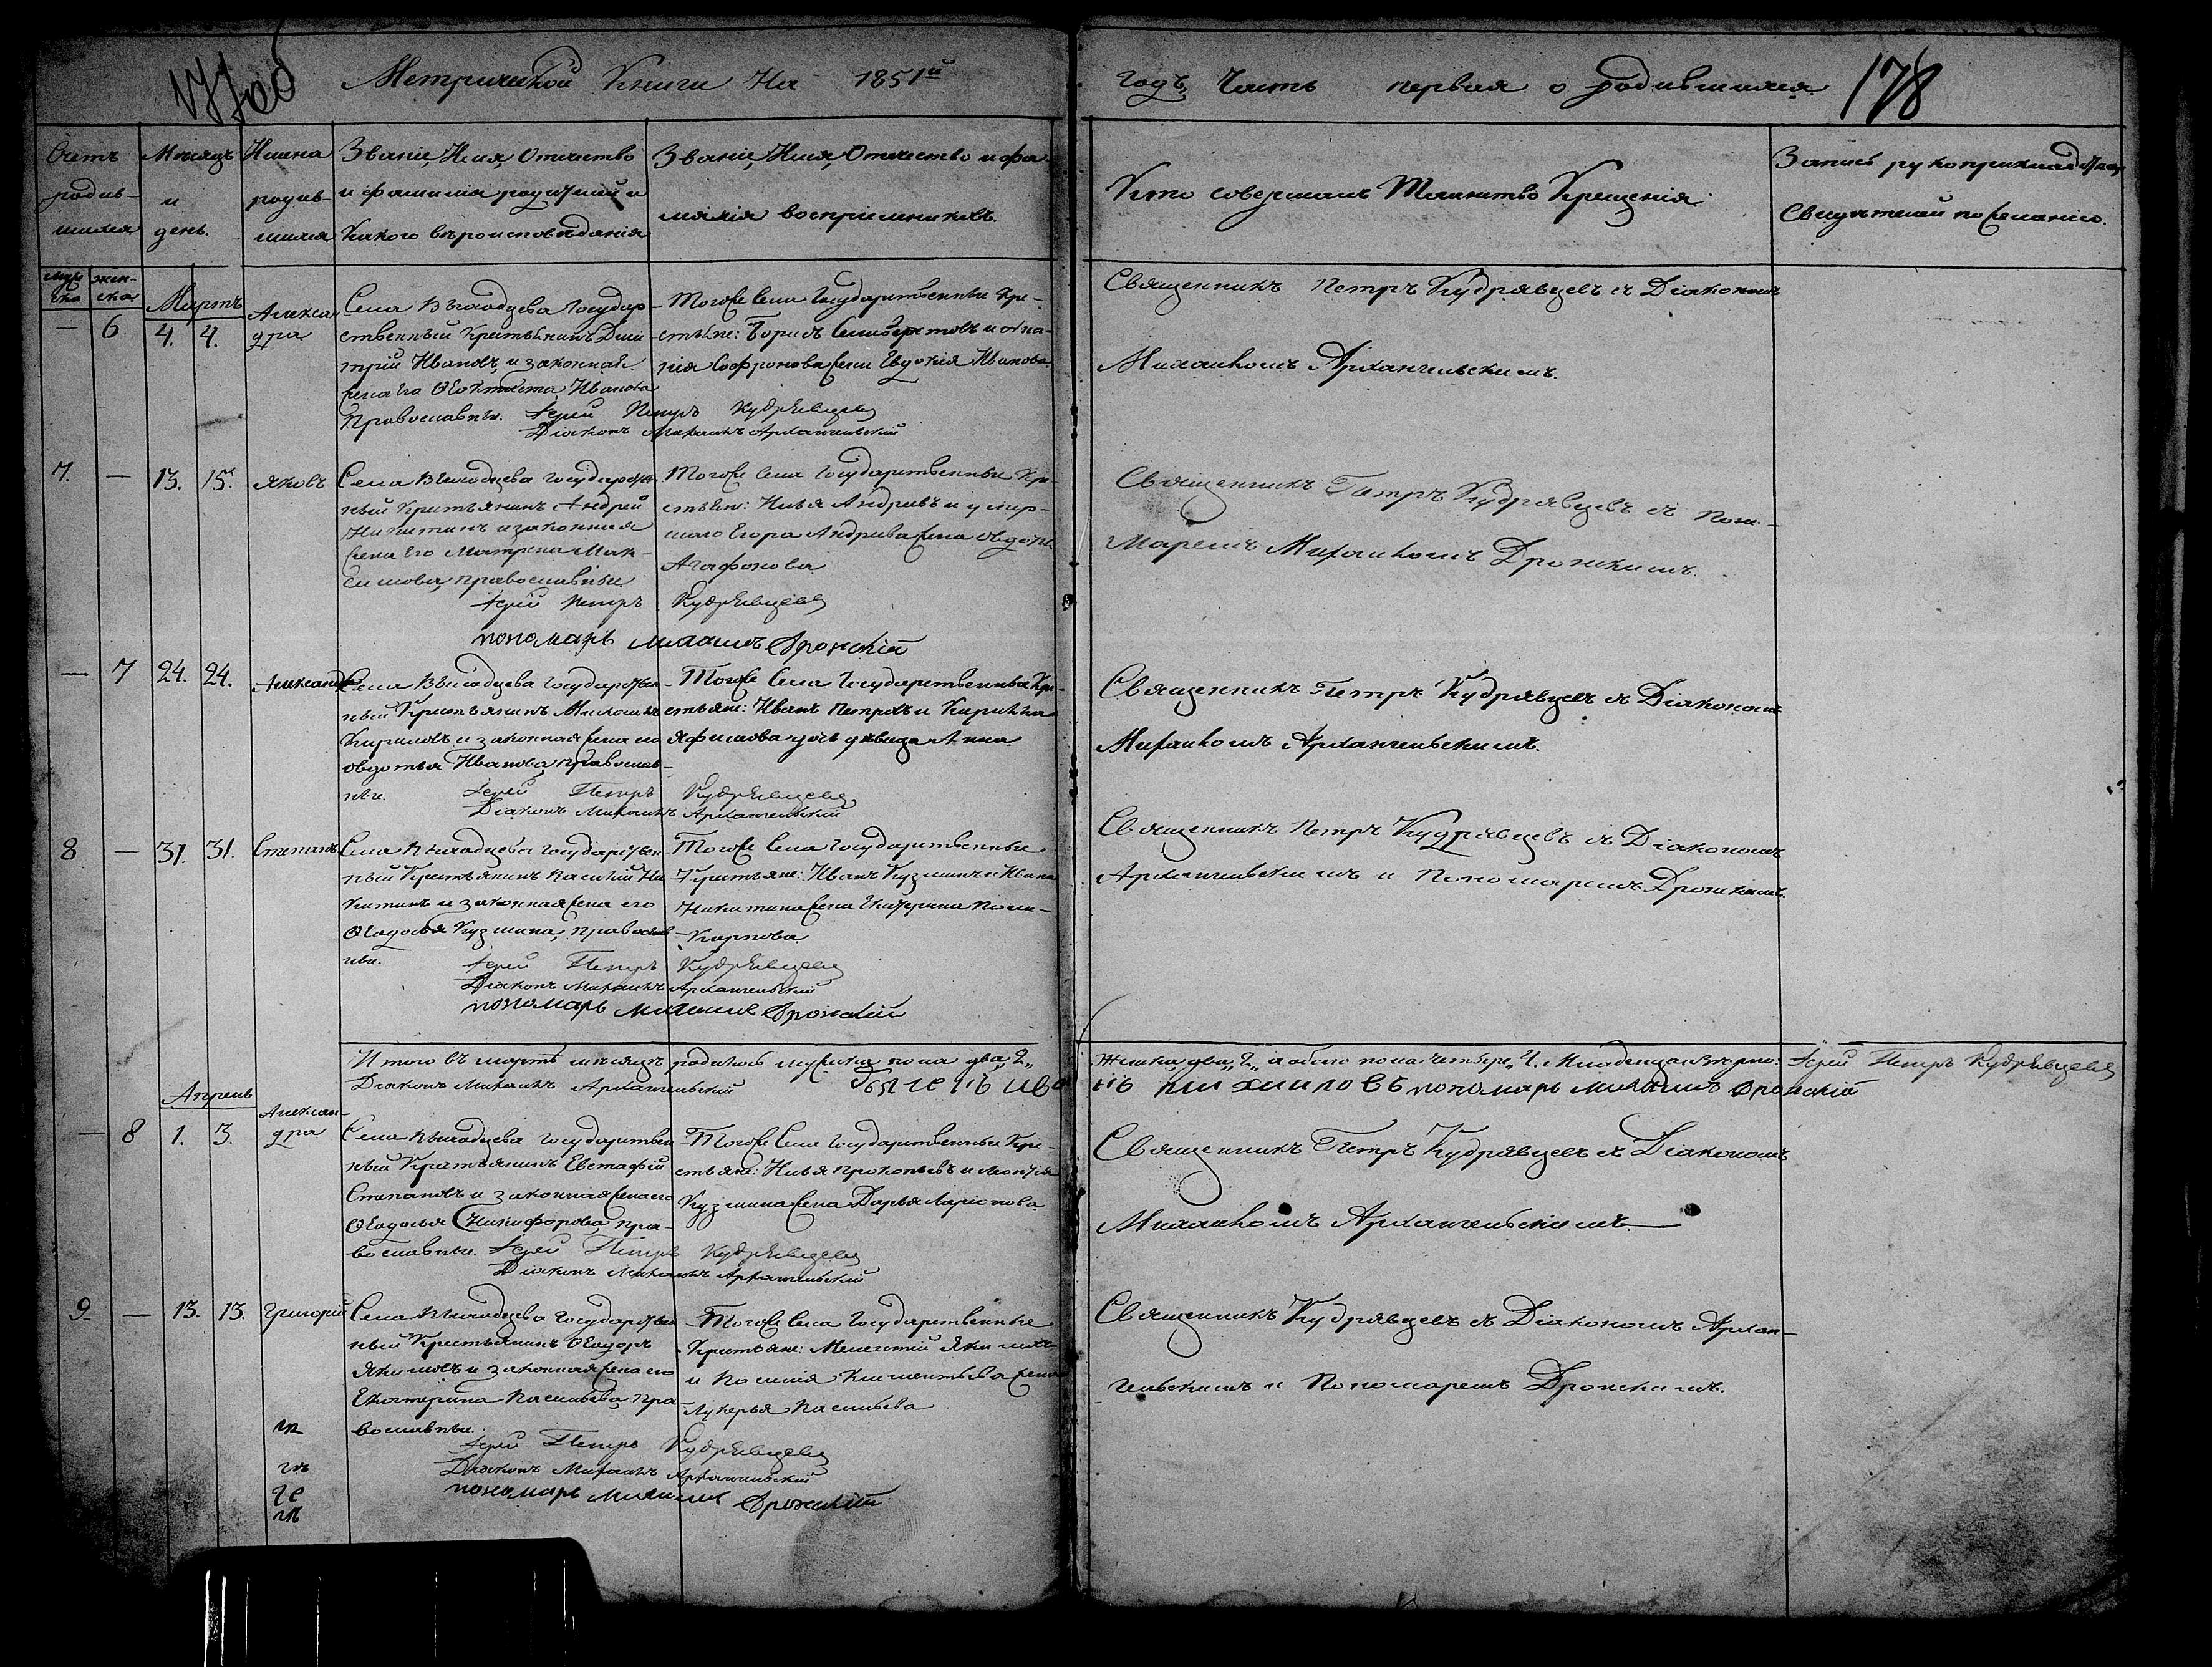 Метрической Книги На 1851й
годъ, Часть первая о родившихся
178
Счетъ
родив-
шихся
Мѣсяцъ
и
день.
Имена
родив-
шихся
Званіе, Имя, Отечество
и фамилія родителей и
Какого вѣроисповѣданія
Званіе, Имя, Отечество и фа-
милія воспріемниковъ.
Кто совершалъ Таинство Крещенія
Запись рукоприкладства
Свидѣтелей по желанію.
Мартъ
— 6 4. 4.
Алексан
дра
Села Государ-
ственный Крестьянинъ Дми
трій Ивановъ и законная
жена его Иванова
Православны.
Іерей Петръ Кудрявцевъ
Діаконъ Михаилъ Архангельскій
Тогоже Села Государственные Кре-
стьяне: Борисъ
Софронова жена Евдокія Иванова
Священникъ Петръ Кудрявцевъ съ Діакономъ
Михаиломъ Архангельскимъ.
7. — 13. 15. Яковъ
Села Государствен-
ный Крестьянинъ Андрей
Никитинъ и законная
жена его Матрена Мак-
симова, православны
Іерей Петръ Кудрявцевъ
пономарь Михаилъ Дронскій
Тогоже Села Государственные Кре-
стьяне: Илья Андреевъ и умер-
шаго Егора Андреева жена
Агафонова
Священникъ Петръ Кудрявцевъ съ Поно-
маремъ Михаиломъ Дронскимъ.
— 7 24. 24. Александра
Села Государствен
ный Крестьянинъ Михаилъ
Кириловъ и законная жена его
Овдотья Иванова, Православ-
ны.
Іерей Петръ Кудрявцевъ
Діаконъ Михаилъ Архангельскій
Тогоже Села Государственные Кре-
стьяне: Иванъ Петровъ и
дочь дѣвица Анна
Священникъ Петръ Кудрявцевъ съ Діакономъ
Михаиломъ Архангельскимъ.
8 — 31. 31. Степанъ
Села Государствен
ный Крестьянинъ Василій Ни
китинъ и законная жена его
Ѳеодосья Кузмина, православ
ны.
Іерей Петръ Кудрявцевъ
Діаконъ Михаилъ Архангельскій
пономарь Михаилъ Дронскій
Тогоже Села Государственные
Крестьяне: Иванъ Кузминъ и Ивана
Никитина жена Екатерина
Карпова
Священникъ Петръ Кудрявцевъ съ Діакономъ
Архангельскимъ и Пономаремъ Дронскимъ.
Итого въ мартѣ мѣсяцѣ родилось мужеска пола два, 2,
женска два, 2, и обоего пола четыре, 4. Младенца. Іерей Петръ Кудрявцевъ
Діаконъ Михаилъ Архангельскій
пономарь Михаилъ Дронскій
Апрель
— 8 1. 3.
Алексан-
дра
Села Государствен
ный Крестьянинъ Евстафій
Степановъ и законная жена его
Ѳеодосья Никифорова, пра-
вославны.
Іерей Петръ Кудрявцевъ
Діаконъ Михаилъ Архангельскій
Тогоже Села Государственные Кре-
стьяне: Илья Прокопьевъ и
Кузмина жена Дарья Ларіонова
Священникъ Петръ Кудрявцевъ съ Діакономъ
Михаиломъ Архангельскимъ.
9. — 13. 13. Григорій
Села Государствен
ный Крестьянинъ Ѳеодоръ
Якимовъ и законная жена его
Екатерина Васильева, Пра
вославны.
Іерей Петръ Кудрявцевъ
Діаконъ Михаилъ Архангельскій
пономарь Михаилъ Дронскій
Тогоже Села Государственные
Крестьяне: Мелетій Якимовъ
и Климентьева жена
Лукерья Васильева
Священникъ Кудрявцевъ съ Діакономъ Архан-
гельскимъ и Пономаремъ Дронскимъ.